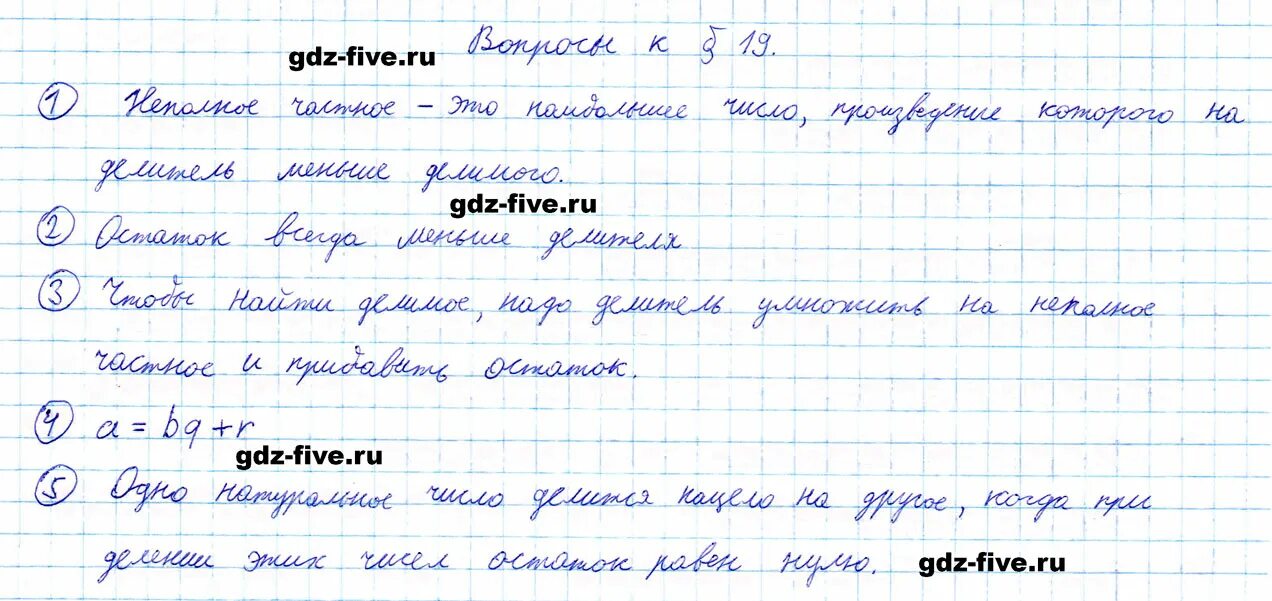 Вопросы к § 19.
gdz-five.ru
1 Неполное частное – это наибольшее число, произведение которого на
делитель меньше делимого.
gdz-five.ru
2 Остаток всегда меньше делителя
3 Чтобы найти делимое, надо делитель умножить на неполное
частное и прибавить остаток.
4 a = bq + r
gdz-five.ru
5 Одно натуральное число делится нацело на другое, когда при
делении этих чисел остаток равен нулю.
gdz-five.ru